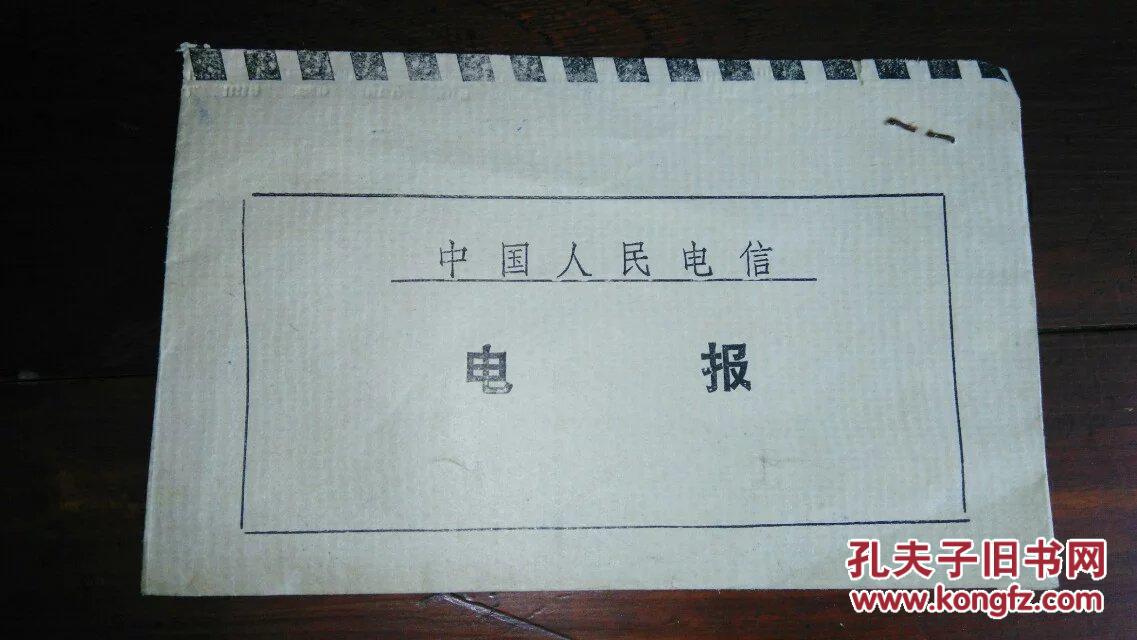 中国人民电信
电报
孔夫子旧书网
www.kongfz.com